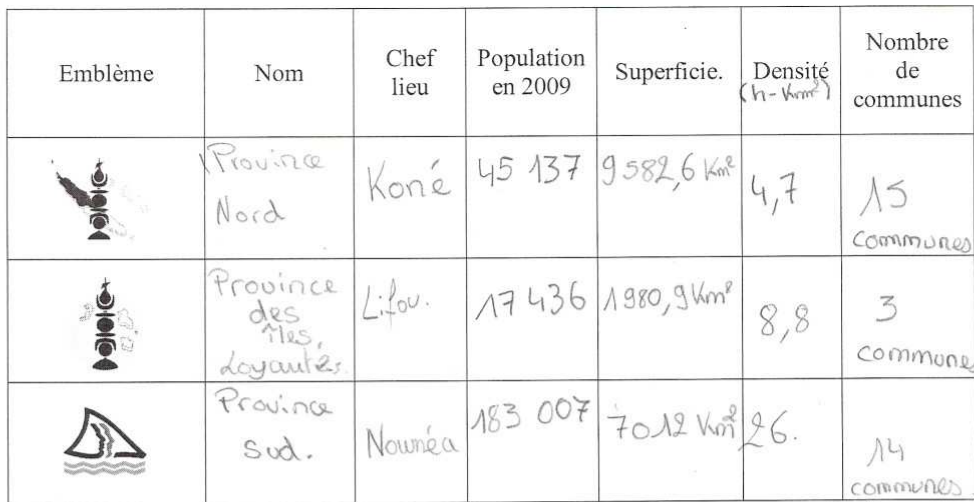 Emblème Nom Chef lieu Population en 2009 Superficie. Densité (h-Km²) Nombre de communes
Province Nord Koné 45 137 9 582,6 Km² 4,7 15 communes
Province des îles, Loyautés. Lifou. 17 436 1 980,9 Km² 8,8 3 commune
Province Sud. Nouméa 183 007 7012 Km² 26. 14 communes